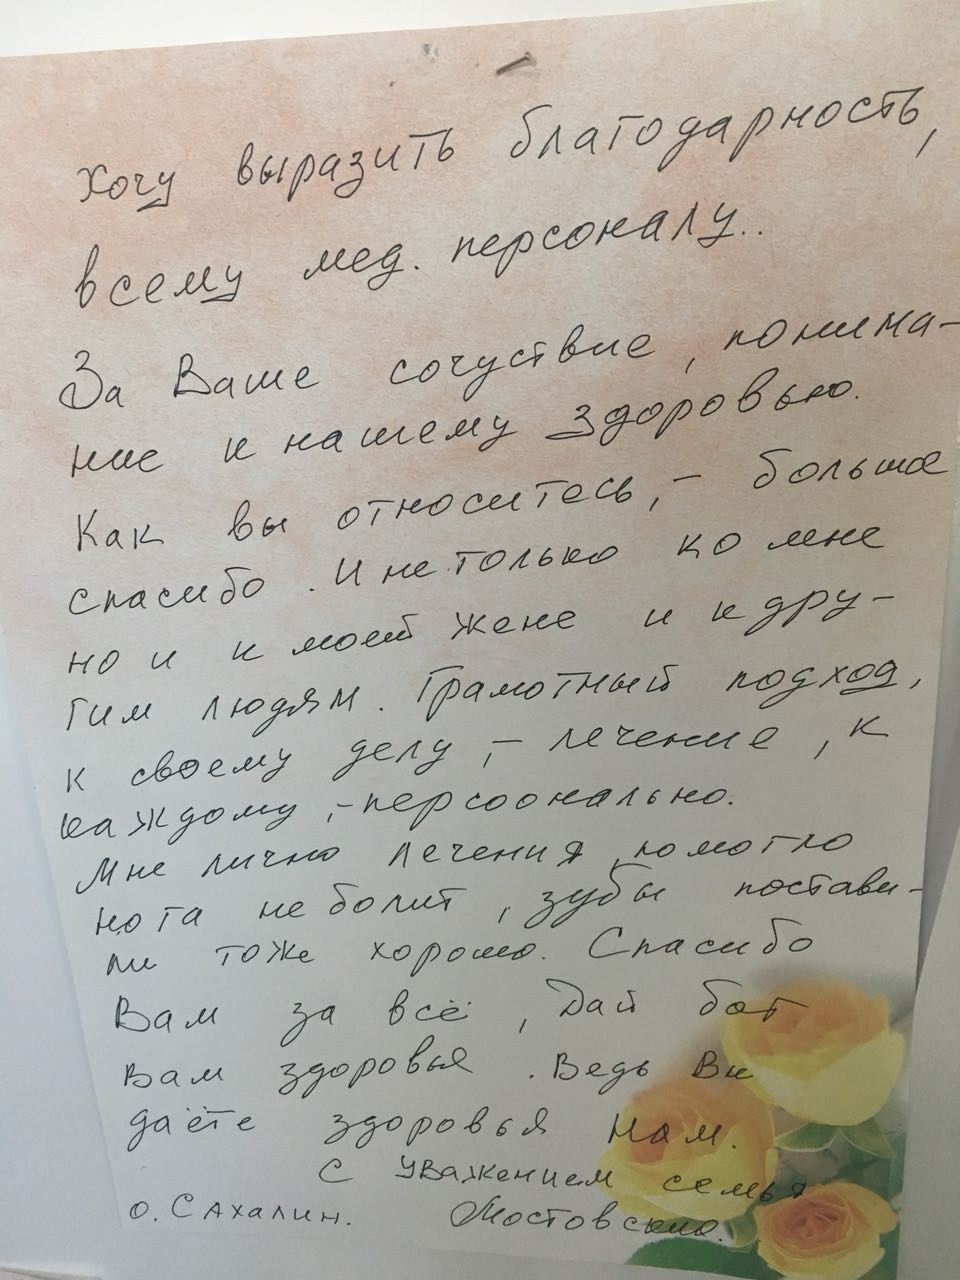 Хочу выразить благодарность,
всему мед. персоналу..
За Ваше сочуствие, понима-
ние к нашему здоровью.
Как вы относитесь, - большое
спасибо. И не только ко мне
но и к моей жене и к дру-
гим людям. Грамотный подход,
к своему делу, - лечение, к
каждому, - персоонально.
Мне лично лечения помогло
нога не болит, зубы постави-
ли тоже хорошо. Спасибо
Вам за всё, Дай бог
вам здоровья. Ведь Вы
даёте здоровья Нам.
С уважением семья
о. Сахалин. Мостовские.